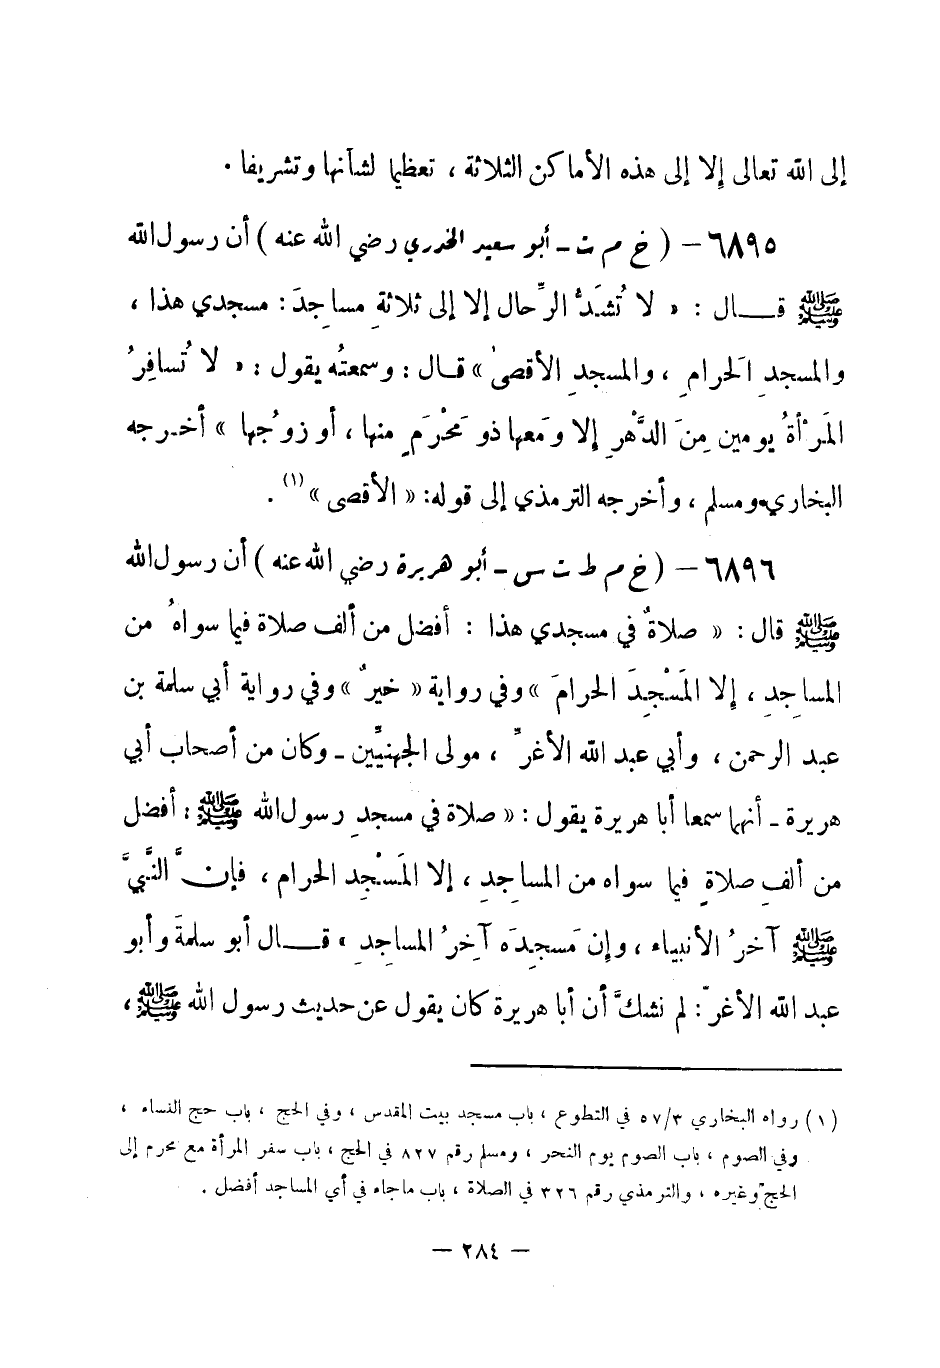 إلى الله تعالى إلا إلى هذه الأماكن الثلاثة ، تعظيما لشأنها وتشريفا .
٦٨٩٥ – ( خ م ت – أبو سعيد الخدري رضي الله عنه ) أن رسول الله
ﷺ قــال : « لا تُشَدُّ الرِّحال إلا إلى ثلاثةِ مساجدَ : مسجدي هذا ،
والمسجدِ الَحرامِ ، والمسجدِ الأقصىٰ » قال : وسمعتُه يقول : « لا تُسافِرُ
المَرْأةُ يومين مِنَ الدَّهْرِ إلا ومَعها ذو مَحْرَمٍ منها ، أو زوجُها » أخرجه
البخاري ومسلم ، وأخرجه الترمذي إلى قوله : « الأقصى » (١) .
٦٨٩٦ – ( خ م ط ت س – أبو هريرة رضي الله عنه ) أن رسول الله
ﷺ قال : « صلاةٌ في مسجدي هذا : أفضل من ألف صلاة فيما سواهُ من
المساجِدِ ، إلا المَسْجِدَ الحرامَ » وفي رواية « خيرٌ » وفي رواية أبي سلمة بن
عبد الرحمن ، وأبي عبد الله الأغرِّ ، مولى الجهنيِّين – وكان من أصحاب أبي
هريرة – أنهما سمعا أبا هريرة يقول : « صلاة في مسجدِ رسول الله ﷺ : أفضل
من ألفِ صلاةٍ فيما سواه من المساجِدِ ، إلا المَسْجِد الحرام ، فإنَّ النَّبيَّ
ﷺ آخرُ الأنبياء ، وإن مَسجِدَه آخِرُ المساجِدِ » قــال أبو سلمةَ وأبو
عبد الله الأغرّ : لم نشكَّ أن أبا هريرة كان يقول عن حديث رسول الله ﷺ ،
(١) رواه البخاري ٥٧/٣ في التطوع ، باب مسجد بيت المقدس ، وفي الحج ، باب حج النساء ،
وفي الصوم ، باب الصوم يوم النحر ، ومسلم رقم ٨٢٧ في الحج ، باب سفر المرأة مع محرم إلى
الحج وغيره ، والترمذي رقم ٣٢٦ في الصلاة ، باب ماجاء في أي المساجد أفضل .
– ٢٨٤ –